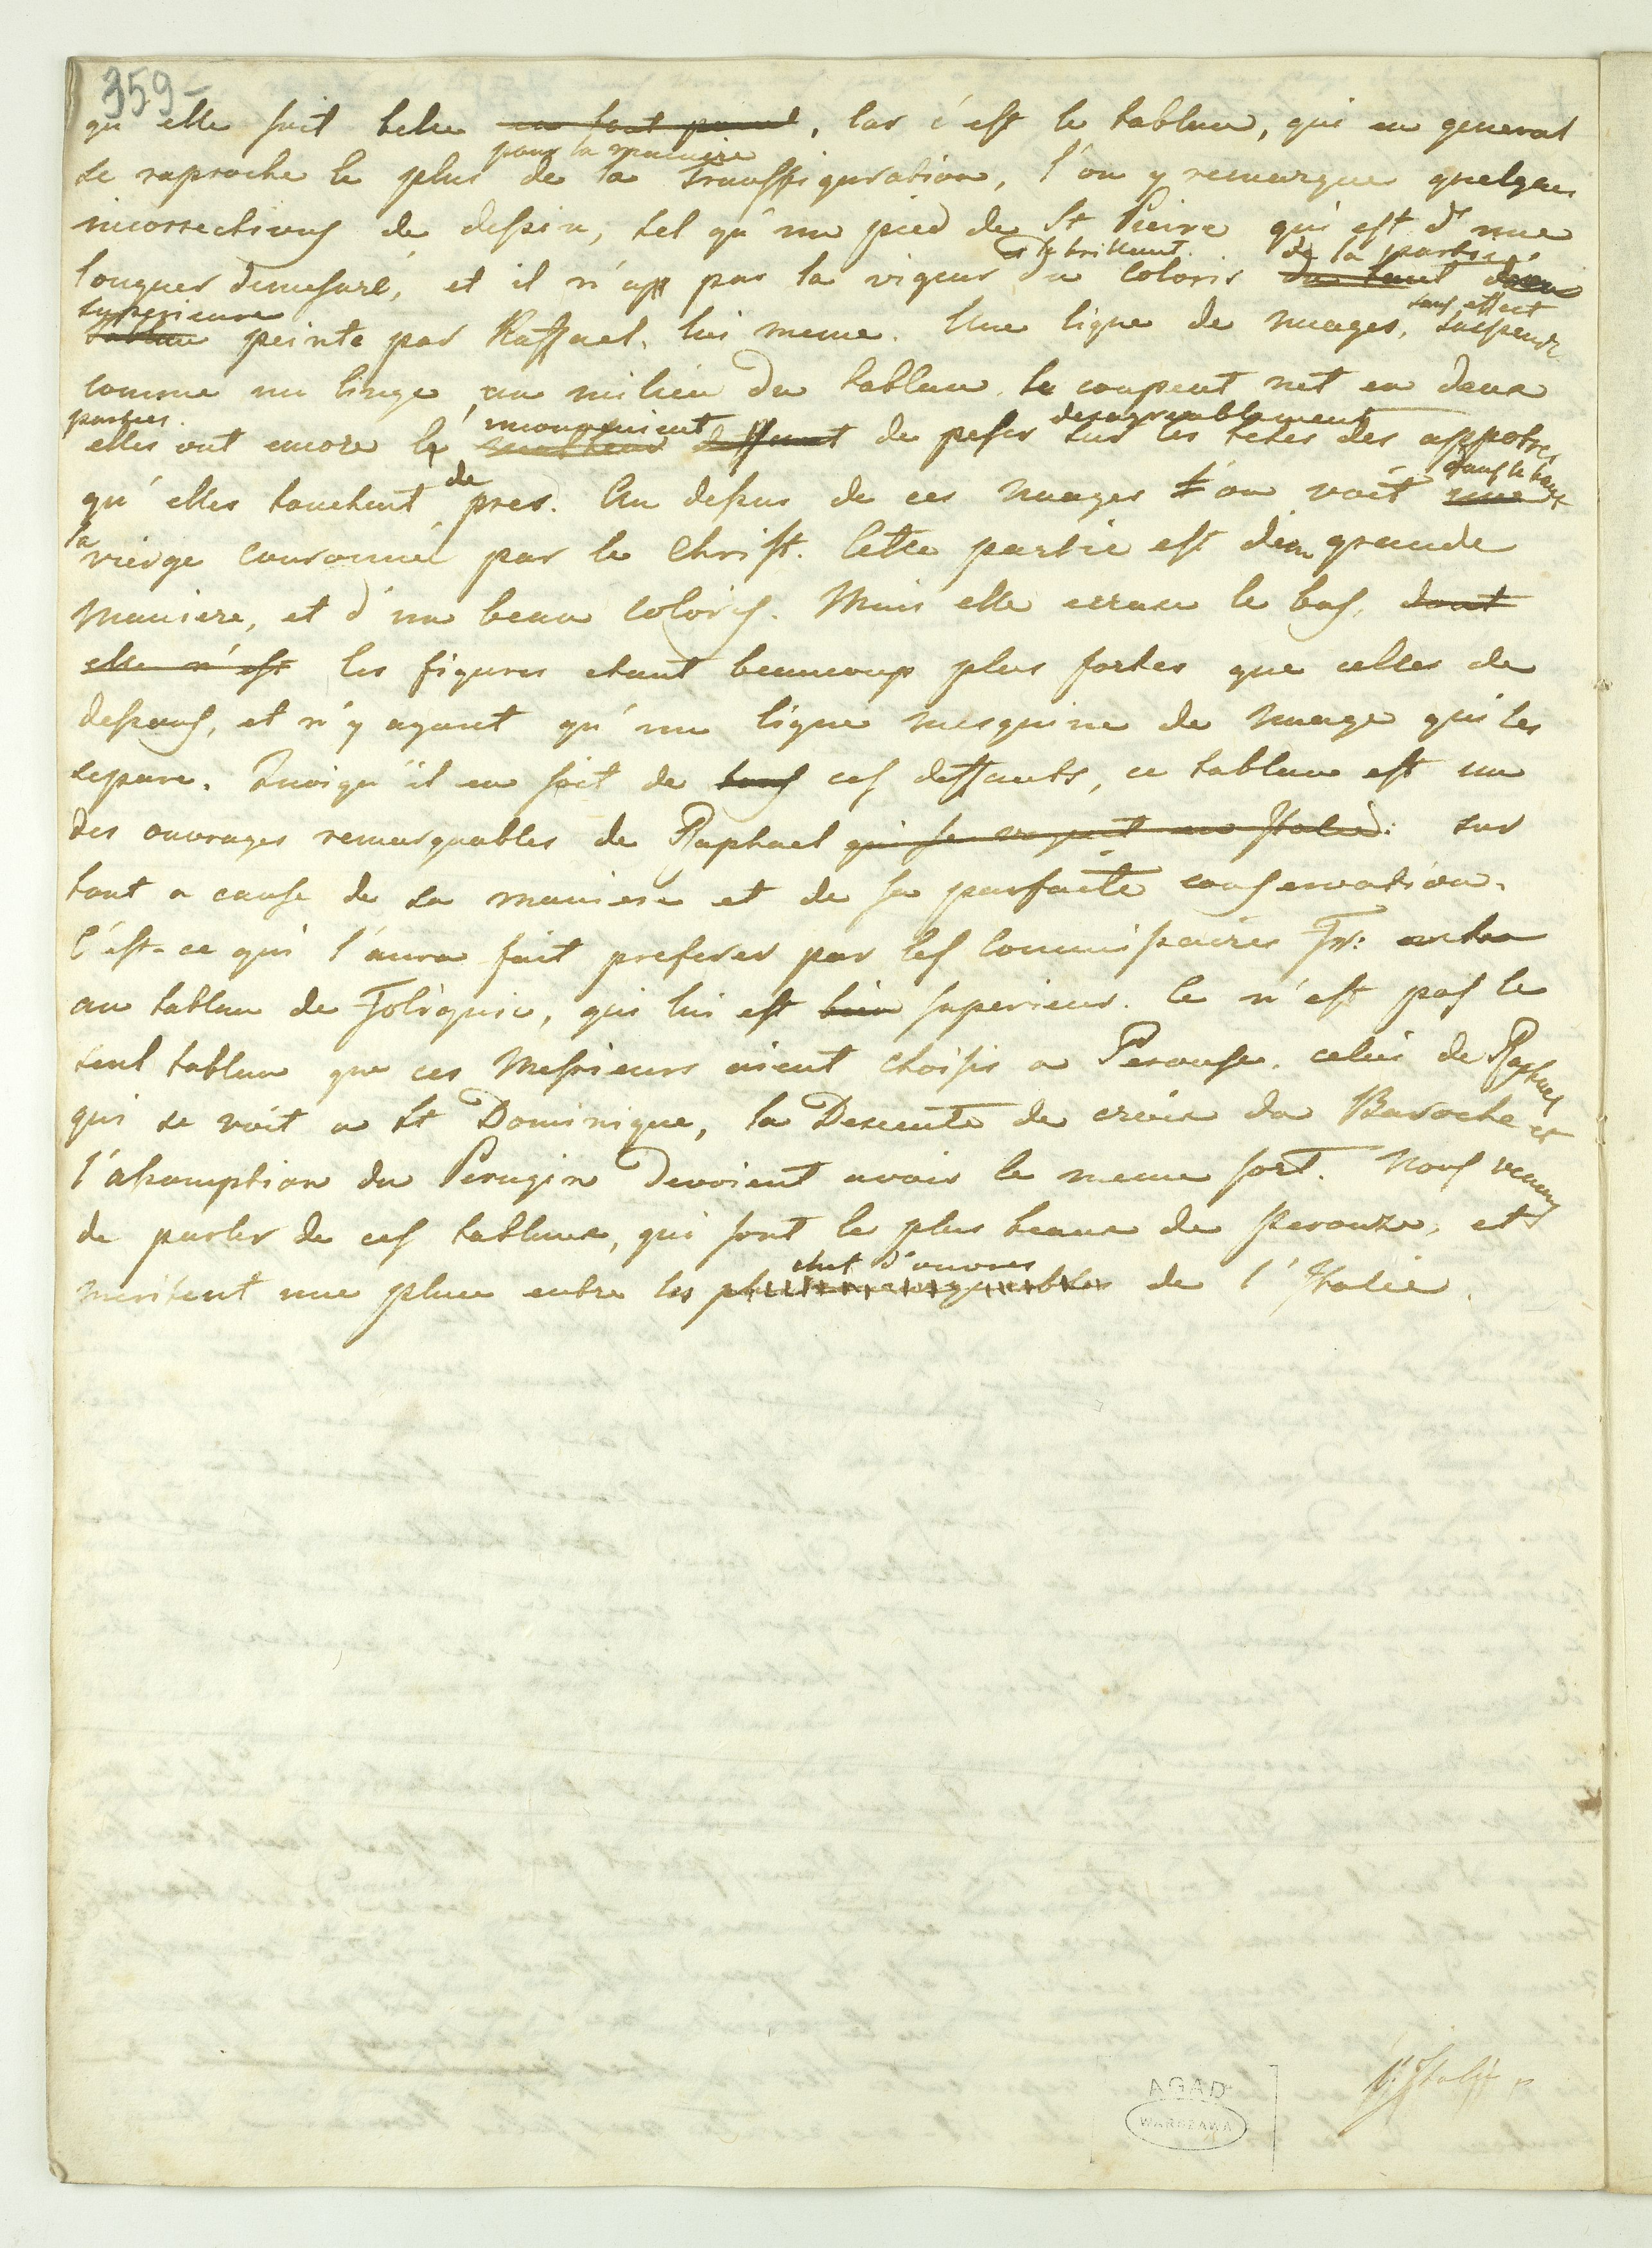 359-
qu'elle soit belle en tout point, car c'est le tableau, qui en general
pour la maniere
se raproche le plus de la Transfiguration, l'on y remarque quelques
incorrections de dessin, tel qu'un pied de St Pierre qui est d'une
et le brillant de la partie
longueur demesuré, et il n'a pas la vigeur du coloris du haut du
superieure sans effect
tableau peinte par Raffael lui meme. Une ligne de nuages, suspendu
comme un linge au milieu du tableau le coupent net en deux
parties. inconvenient desagreablement
elles ont encore le deffaut de peser sur les tetes des appotres
de dans le haut
qu'elles touchent pres. Au dessus de ces nuages l'on voit une
la vierge couronné par le Christ. Cette partie est d'un grande
maniere, et d'un beau coloris. Mais elle ecrase le bas, dont
elle n'est les figures etant beaucoup plus fortes que celles de
dessous, et n'y ayant qu'une ligne mesquine de nuage qui les
separe. Quoiqu'il en soit de tous ces deffauts, ce tableau est un
des ouvrages remarquables de Raphael qui se voyent en Italie: sur
tout a cause de sa maniere et de sa parfaite conservation.
C'est-ce qui l'aura fait preferer par les Commissaires Fr:
au tableau de Foligniu, qui lui est bien superieur. Ce n'est pas le
seul tableau que ces Messieurs aient choisis a Perouse. celui de Raphael
qui se voit a St Dominique, la Descente de croix du Baroche et
l'assomption du Perugin devoient avoir le meme sort. Nous venons
de parler de ces tableaux, qui sont le plus beaux de Perouze, et
chef d'œuvres
meritent une place entre les plus remarquables de l'Italie.
AGAD
WARSZAWA